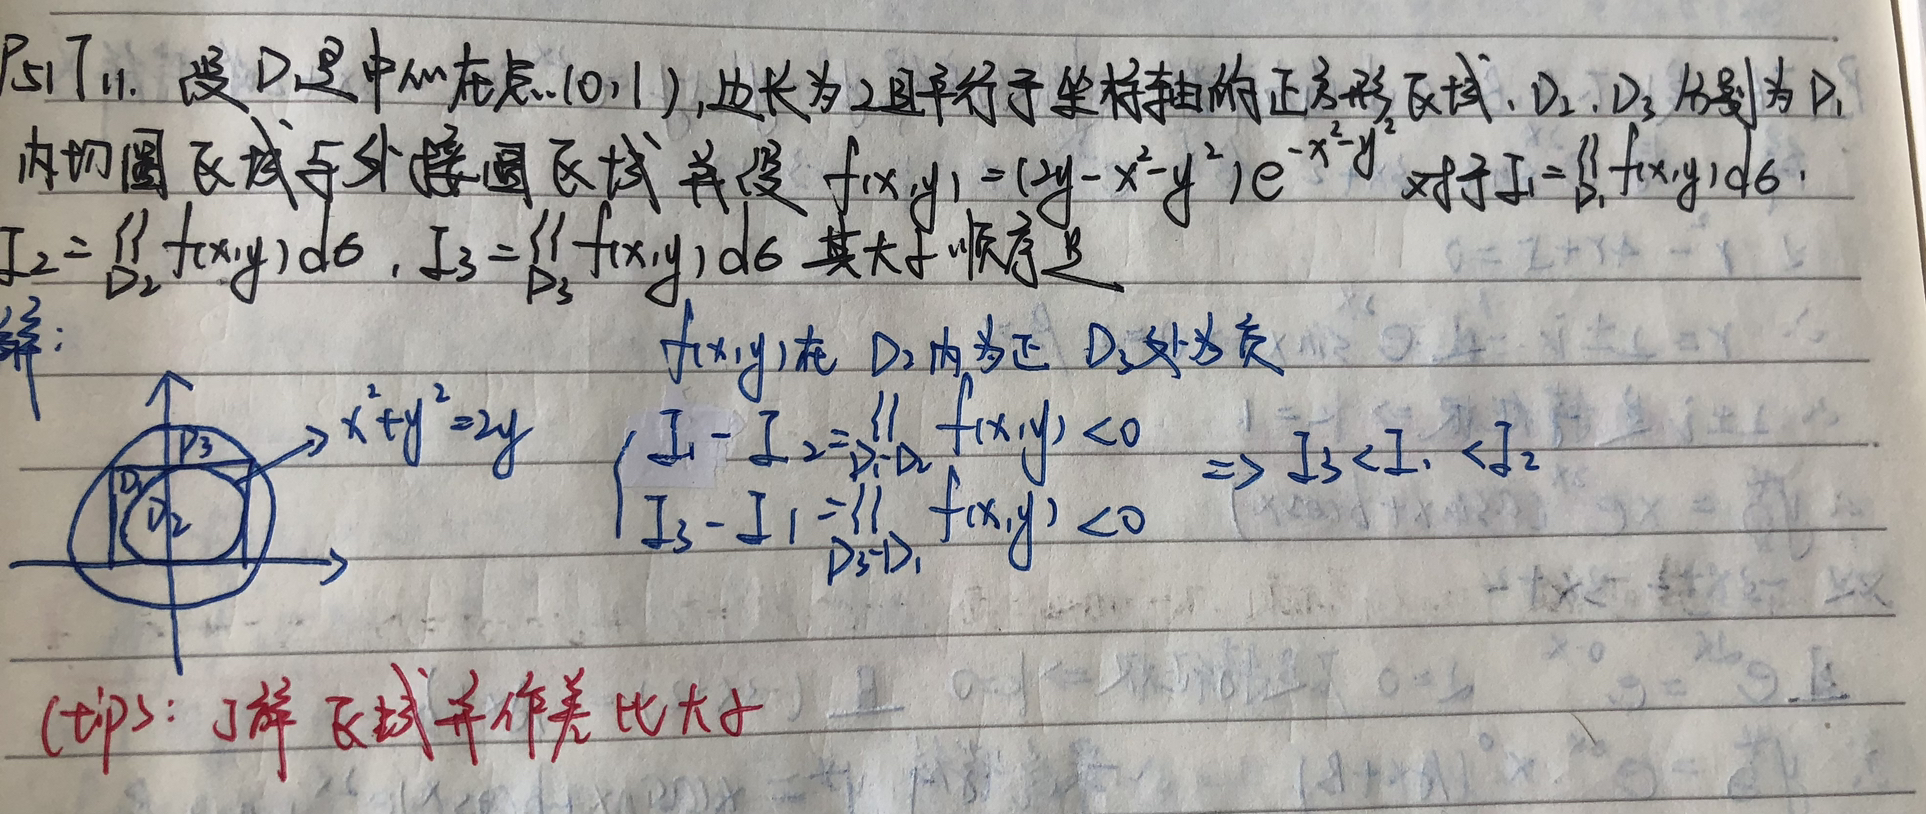 P51 T11. 设D1是中心在点(0,1),边长为2且平行于坐标轴的正方形区域.D2.D3分别为D1
内切圆区域与外接圆区域并设 f(x,y)=(2y-x²-y²)e^{-x²-y²} 对于I1=∬_{D1}f(x,y)dσ.
I2=∬_{D2}f(x,y)dσ, I3=∬_{D3}f(x,y)dσ 其大小顺序是
解:
f(x,y)在 D2内为正 D2外为负
x²+y²=2y
D3
D1
D2
I1-I2=∬_{D1-D2} f(x,y)<0
I3-I1=∬_{D3-D1} f(x,y)<0
=> I3<I1<I2
(tips: 了解区域并作差比大小